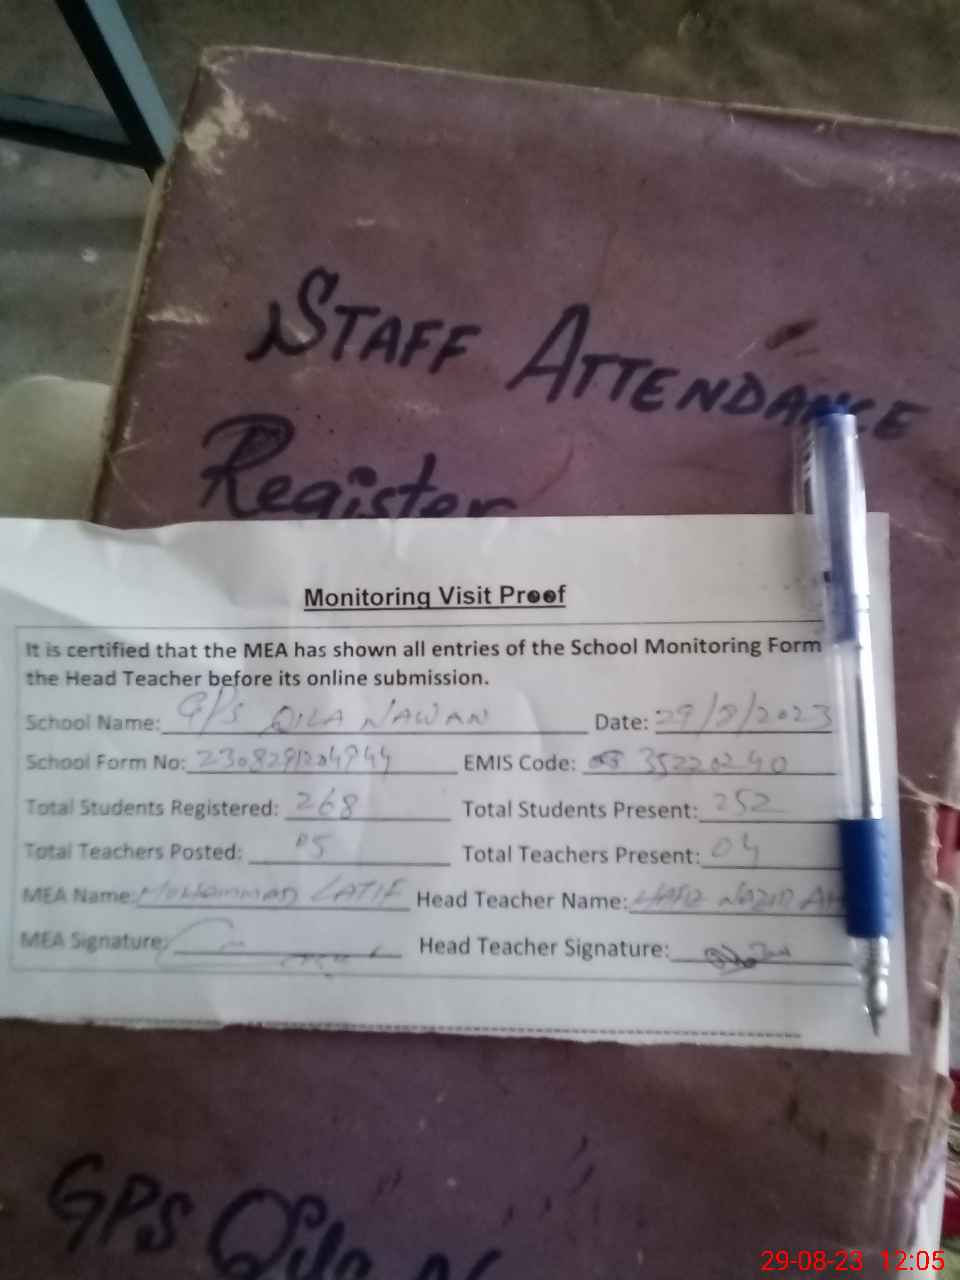 STAFF ATTENDANCE
Register
Monitoring Visit Proof
It is certified that the MEA has shown all entries of the School Monitoring Form
the Head Teacher before its online submission.
School Name: GPS QILA NAWAN Date: 29/8/2023
School Form No: EMIS Code: 35220240
Total Students Registered: 268 Total Students Present: 252
Total Teachers Posted: 05 Total Teachers Present: 04
MEA Name: Mohammad LATIF Head Teacher Name: HAFIZ NAZIR AH
MEA Signature: Head Teacher Signature:
GPS Qila N
29-08-23 12:05